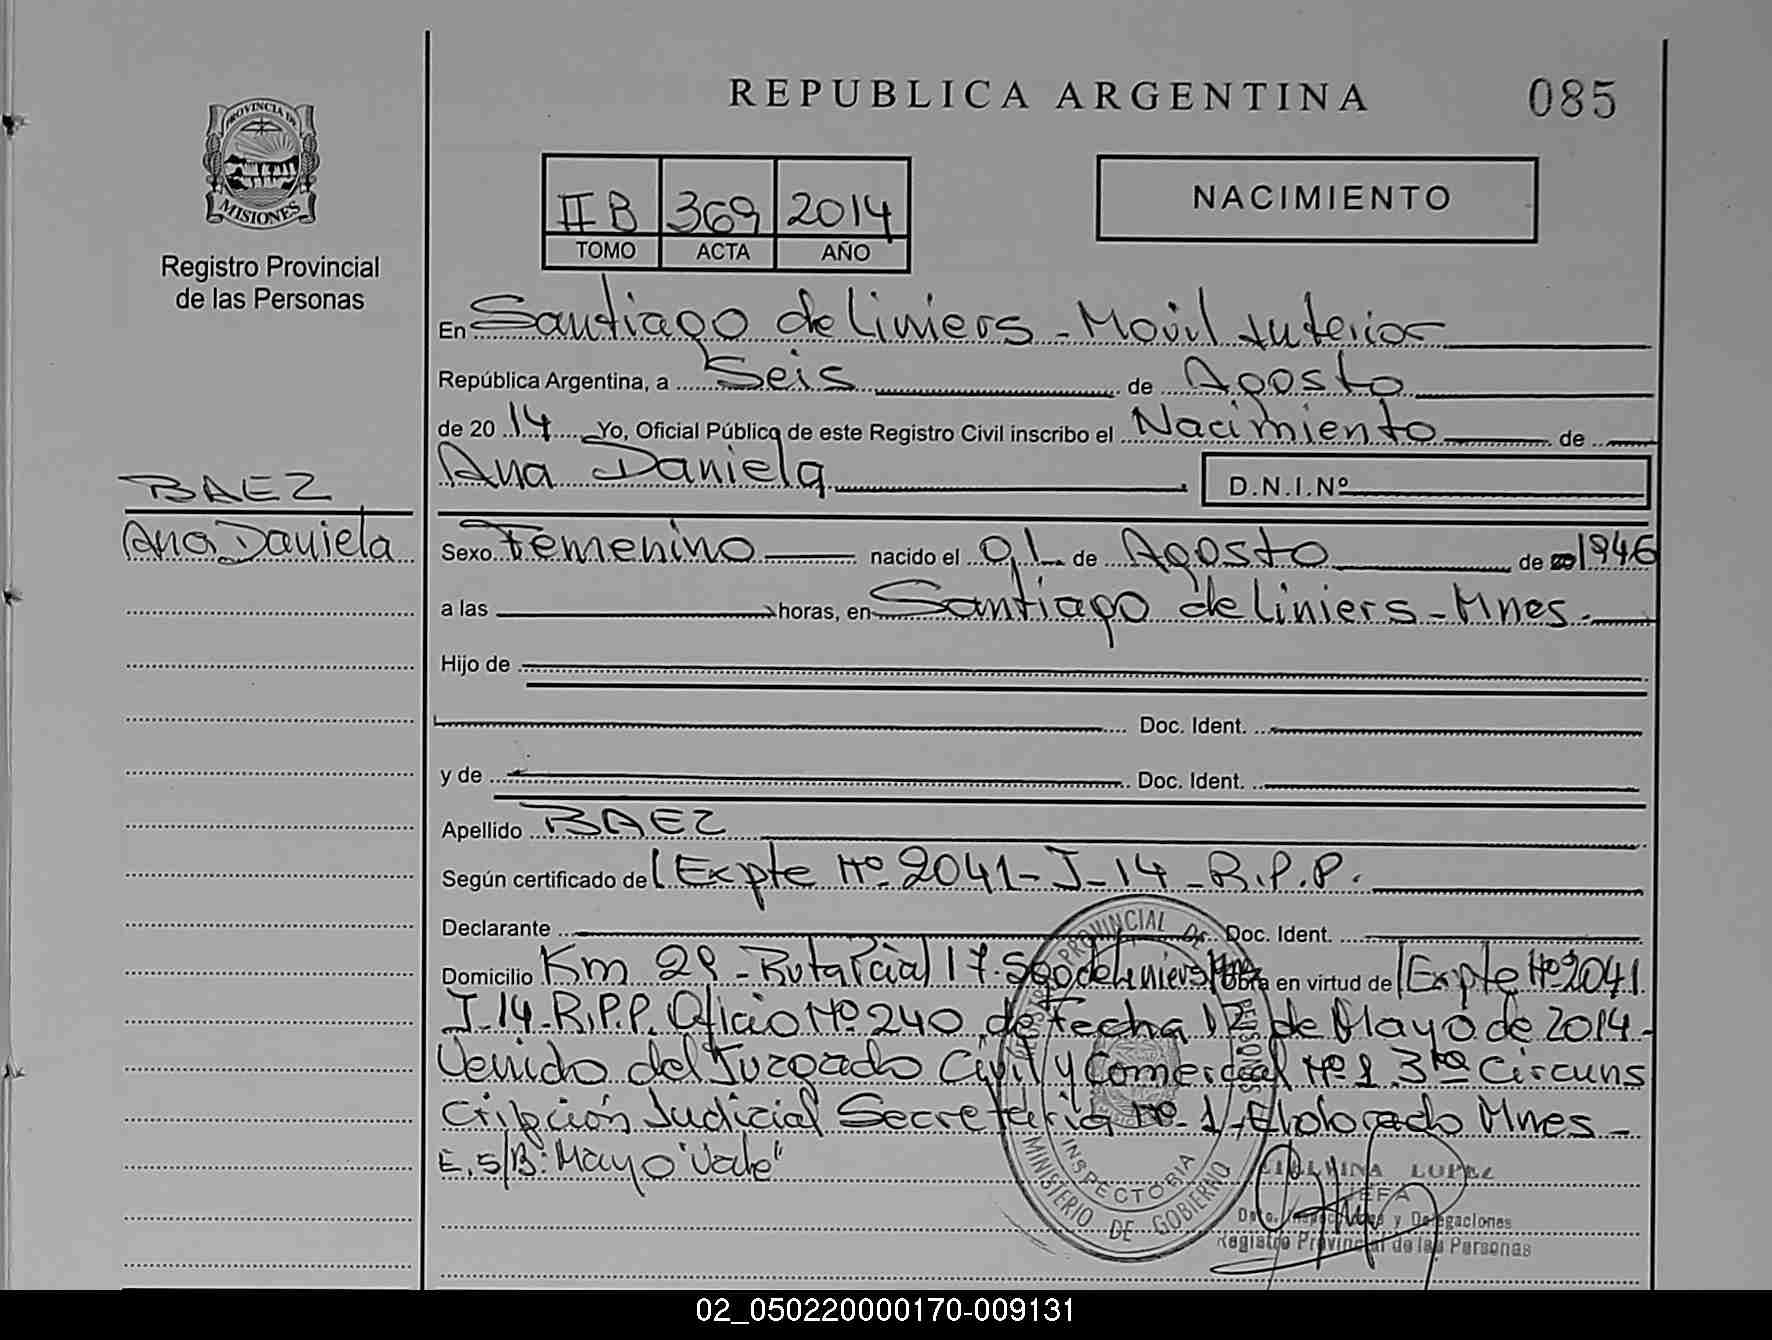 REPUBLICA ARGENTINA
085
PROVINCIA DE
MISIONES
Registro Provincial
de las Personas
II B 369 2014
TOMO ACTA AÑO
NACIMIENTO
En Santiago de Liniers - Movil Interior
República Argentina, a Seis de Agosto
de 20 14 Yo, Oficial Público de este Registro Civil inscribo el Nacimiento de
Ana Daniela
D.N.I.Nº
BAEZ
Ana Daniela
Sexo Femenino nacido el 01 de Agosto de 1946
a las horas, en Santiago de Liniers - Mnes.
Hijo de
Doc. Ident.
y de Doc. Ident.
Apellido BAEZ
Según certificado de Expte Nº 2041-J-14-R.P.P.
Declarante Doc. Ident.
Domicilio Km 29 - Ruta Pcial 17. Sgo de Liniers Obra en virtud de Expte Nº 2041
J-14-R.P.P. Oficio Nº 240 de Fecha 12 de Mayo de 2014-
Venido del Juzgado Civil y Comercial Nº 1 3ra Circuns
cripción Judicial Secretaria Nº 1 - Eldorado Mnes -
E.S/B: Mayo "Vale"
REGISTRO PROVINCIAL DE PERSONAS
INSPECTORIA
MINISTERIO DE GOBIERNO
LOPEZ
JEFA
Dpto. Inspecciones y Delegaciones
Registro Provincial de las Personas
02_050220000170-009131